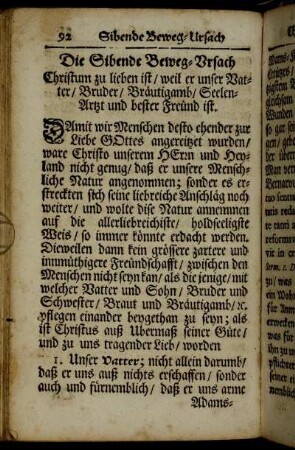 92 Sibende Beweg-Ursach
Die Sibende Beweg-Vrsach
Christum zu lieben ist / weil er unser Vat-
ter / Bruder / Bräutigamb / Seelen-
Artzt und bester Freünd ist.
DAmit wir Menschen desto ehender zur
Liebe GOttes angereitzet wurden /
ware Christo unserem HErrn und Hey-
land nicht genug / daß er unsere Mensch-
liche Natur angenommen; sonder es er-
streckten sich seine liebreiche Anschläg noch
weiter / und wolte dise Natur annemmen
auf die allerliebreichiste / holdseeligste
Weis / so immer könnte erdacht werden.
Dieweilen dann kein grössere zartere und
inmüthigere Freündschafft / zwischen den
Menschen nicht seyn kan / als die jenig / mit
welcher Vatter und Sohn / Bruder und
Schwester / Braut und Bräutigamb / ꝛc.
pflegen einander beygethan zu seyn; als
ist Christus auß Ubermaß seiner Güte /
und zu uns tragender Lieb / worden
1. Unser Vatter; nicht allein darumb /
daß er uns auß nichts erschaffen / sonder
auch und fürnemblich / daß er uns arme
Adams-